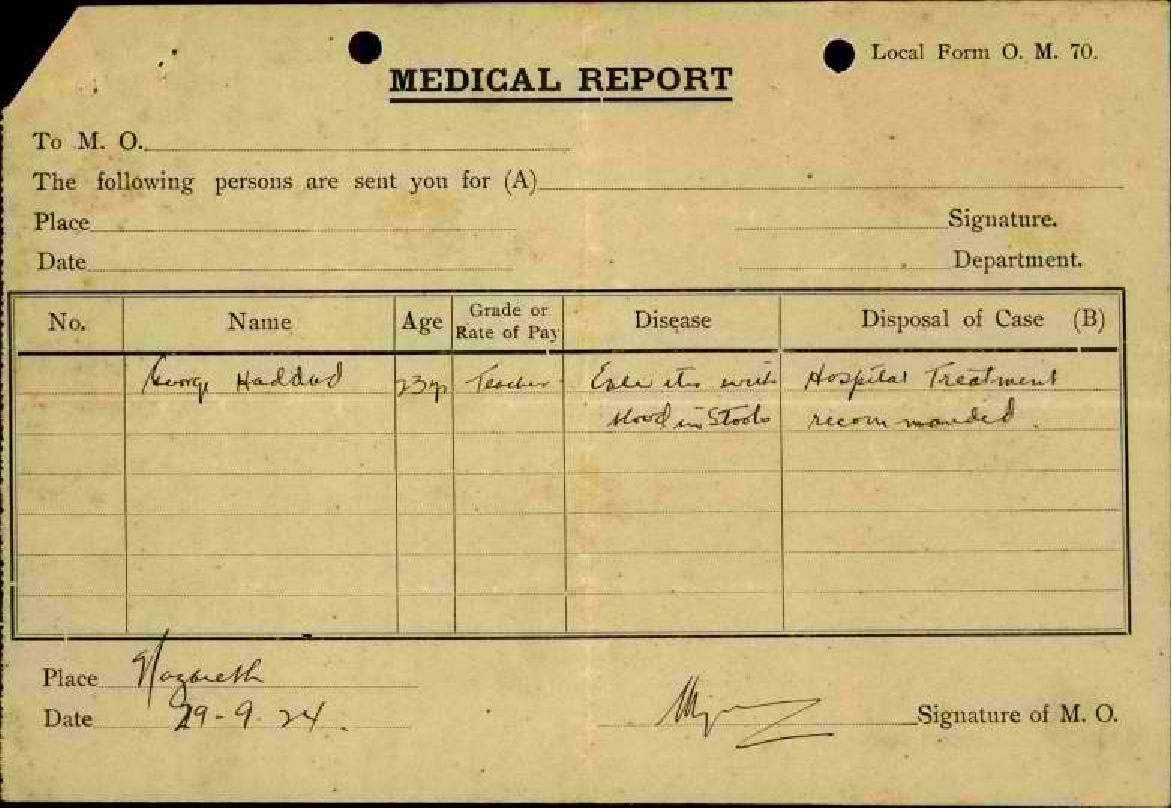 Local Form O. M. 70.
MEDICAL REPORT
To M. O.
The following persons are sent you for (A)
Place Signature.
Date Department.
No. Name Age Grade or Rate of Pay Disease Disposal of Case (B)
George Haddad 23 Teacher with Hospital Treatment
blood in Stools recommanded.
Place Nazareth
Date 29-9-24.
Signature of M. O.